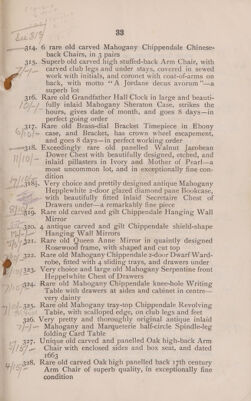 33
314. 6 rare old carved Mahogany Chippendale Chinese-
back Chairs, in 3 pairs
315. Superb old carved high stuffed-back Arm Chair, with
carved club legs and under stays, covered in sewed
work with initials, and coronet with coat-of-arms on
back, with motto "A Jordane decus avorum"—a
superb lot
316. Rare old Grandfather Hall Clock in large and beauti-
fully inlaid Mahogany Sheraton Case, strikes the
hours, gives date of month, and goes 8 days—in
perfect going order
317. Rare old Brass-dial Bracket Timepiece in Ebony
case, and Bracket, has crown wheel escapement,
and goes 8 days—in perfect working order
318. Exceedingly rare old panelled Walnut Jacobean
Dower Chest with beautifully designed, etched, and
inlaid pillasters in Ivory and Mother of Pearl—a
most uncommon lot, and in exceptionally fine con-
dition
318½. Very choice and prettily designed antique Mahogany
Hepplewhite 2-door glazed diamond pane Bookcase,
with beautifully fitted inlaid Secretaire Chest of
Drawers under—a remarkably fine piece
319. Rare old carved and gilt Chippendale Hanging Wall
Mirror
320. 4 antique carved and gilt Chippendale shield-shape
Hanging Wall Mirrors
321. Rare old Queen Anne Mirror in quaintly designed
Rosewood frame, with shaped and cut top
322. Rare old Mahogany Chippendale 2-door Dwarf Ward-
robe, fitted with 4 sliding trays, and drawers under
323. Very choice and large old Mahogany Serpentine front
Hepplewhite Chest of Drawers
324. Rare old Mahogany Chippendale knee-hole Writing
Table with drawers at sides and cabinet in centre—
very dainty
325. Rare old Mahogany tray-top Chippendale Revolving
Table, with scalloped edge, on club legs and feet
326. Very pretty and thoroughly original antique inlaid
Mahogany and Marqueterie half-circle Spindle-leg
folding Card Table
327. Unique old carved and panelled Oak high-back Arm
Chair with enclosed sides and box seat, and dated
1663
328. Rare old carved Oak high panelled back 17th century
Arm Chair of superb quality, in exceptionally fine
condition